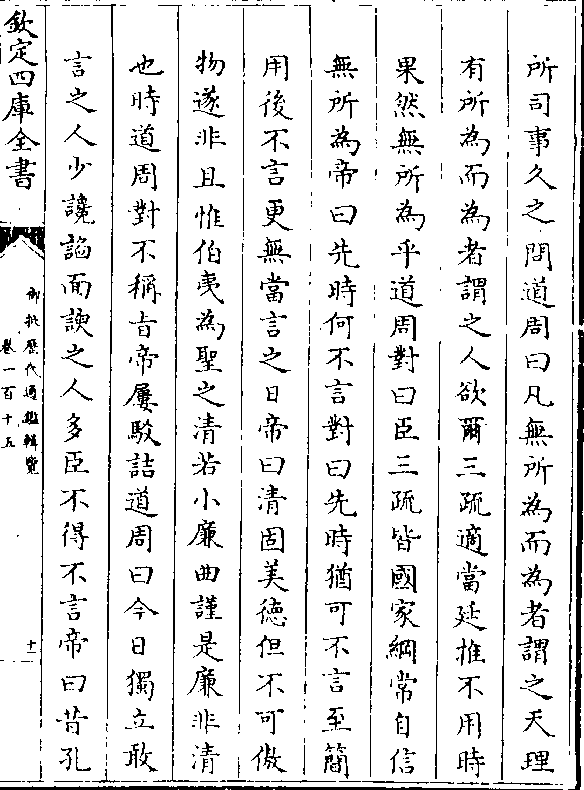 所司事久之問道周曰凡無所為而為者謂之天理
有所為而為者謂之人欲爾三疏適當廷推不用時
果然無所為乎道周對曰臣三疏皆國家綱常自信
無所為帝曰先時何不言對曰先時猶可不言至簡
用後不言更無當言之日帝曰清固美德但不可傲
物遂非且惟伯夷為聖之清若小廉曲謹是廉非清
也時道周對不稱旨帝屢駁詰道周曰今日獨立敢
言之人少讒諂面諛之人多臣不得不言帝曰昔孔
欽定四庫全書
御批歷代通鑑輯覽
卷一百十五
十一